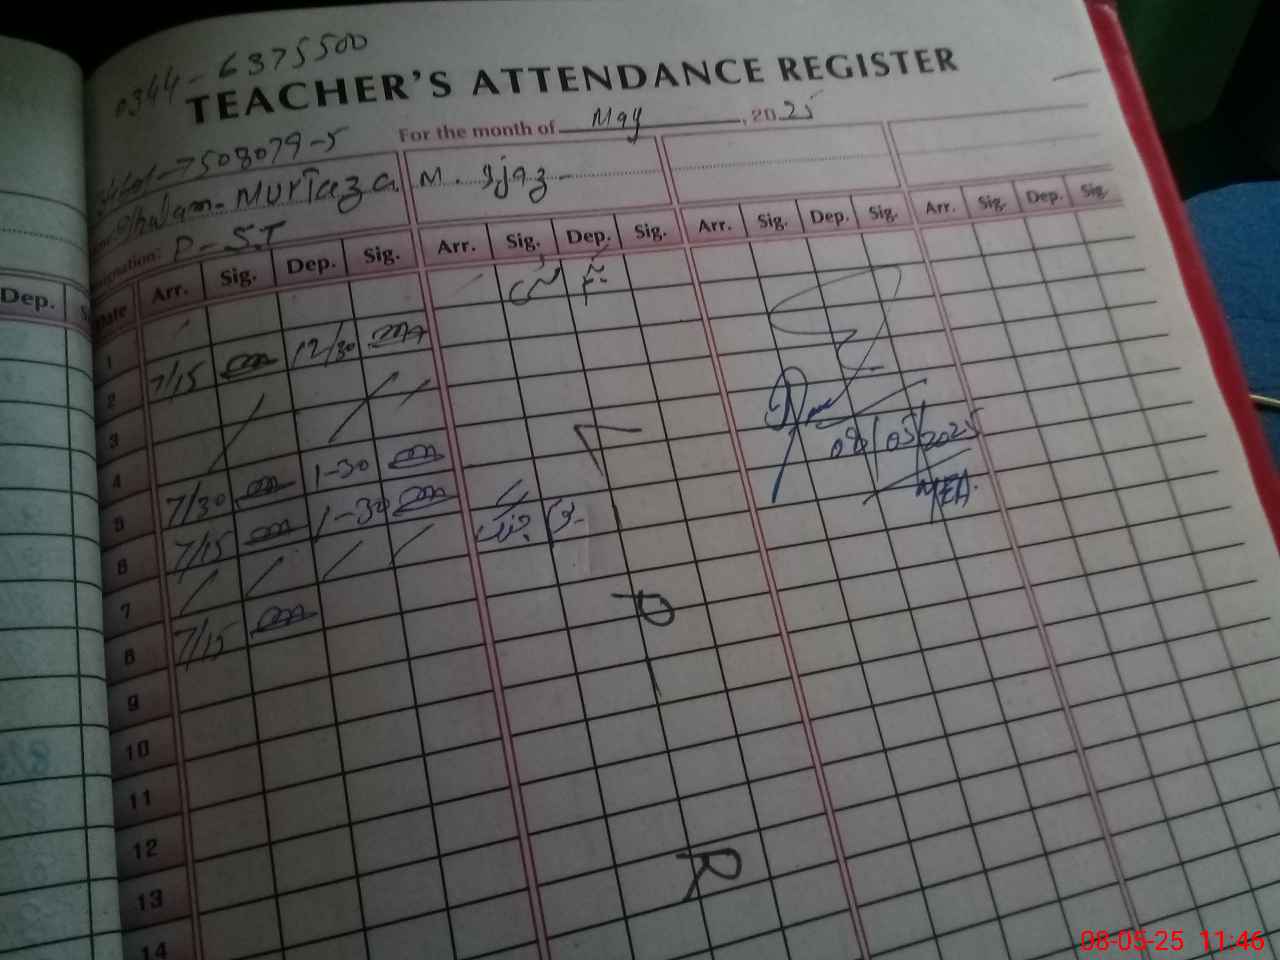 0344-6375500
TEACHER'S ATTENDANCE REGISTER
For the month of May, 2025
7508079-5
Ghulam Murtaza M. Ijaz
P-S.T
Date Arr. Sig. Dep. Sig. Arr. Sig. Dep. Sig. Arr. Sig. Dep. Sig. Arr. Sig. Dep. Sig.
Dep.
1
7/15 12/30
2
3
4
7/30 1-30
5
7/15 1-30
6
7
7/15
8
9
10
11
12
13
14
08/05/2025
MEA.
R
08-05-25 11:46